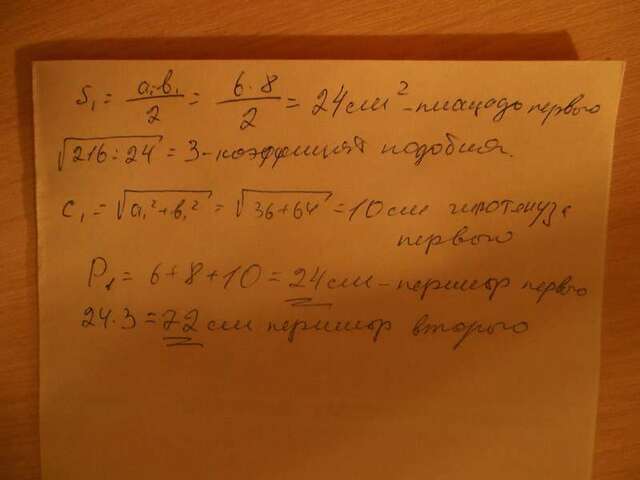 S₁ = a₁b₁/2 = 6·8/2 = 24 см² – площадь первого
√216:24 = 3 – коэффициент подобия.
c₁ = √a₁²+b₁² = √36+64 = 10 см гипотенуза
первого
P₁ = 6+8+10 = 24 см – периметр первого
24·3 = 72 см периметр второго